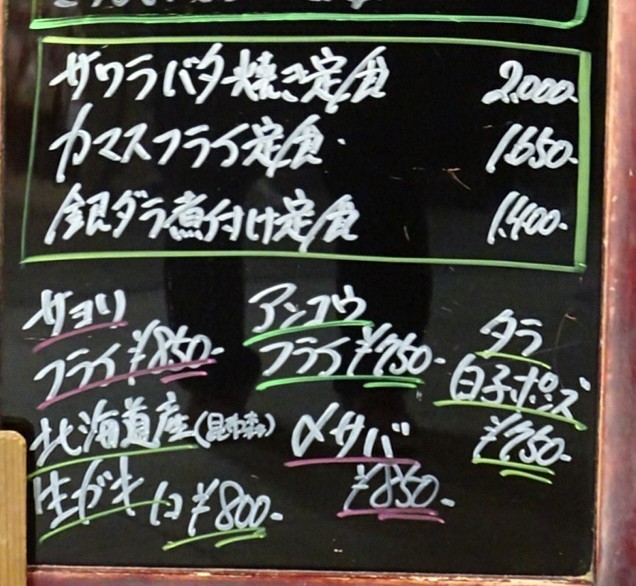 サワラバタ焼き定食 2,000-
カマスフライ定食 1,650-
銀ダラ煮付け定食 1,400-
サヨリ
フライ ¥850-
アンコウ
フライ ¥750-
タラ
白子ポンズ
¥750-
北海道産(昆布森)
生がき 1コ ¥800-
〆サバ
¥850-